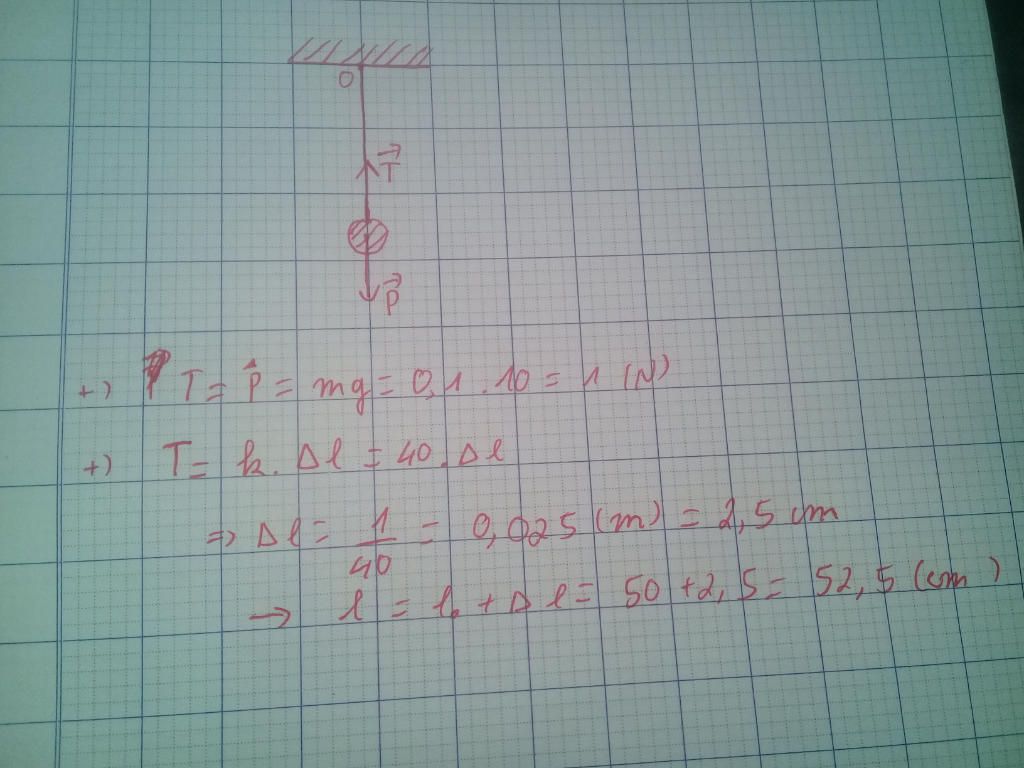 O
T⃗
P⃗
+) T = P = mg = 0,1 . 10 = 1 (N)
+) T = k. Δl = 40. Δl
=> Δl = 1/40 = 0,025 (m) = 2,5 cm
→ l = l₀ + Δl = 50 + 2,5 = 52,5 (cm)